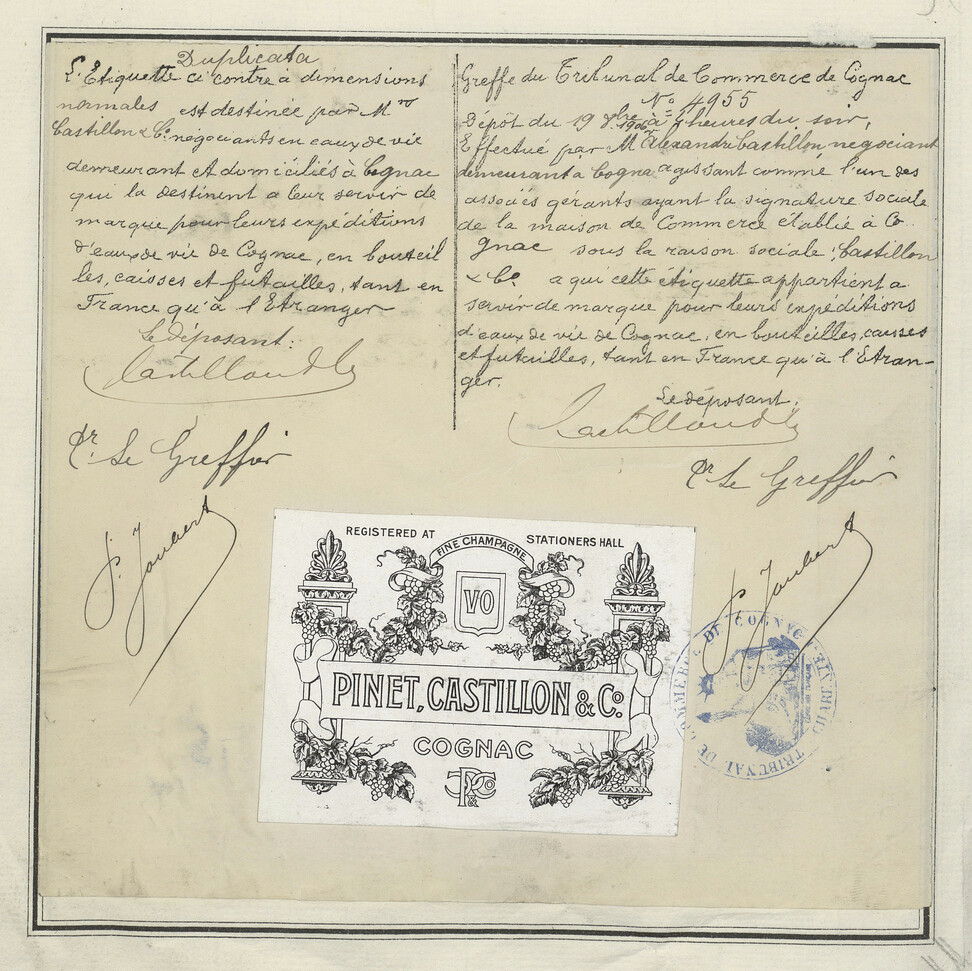 Duplicata
L'Etiquette ci contre à dimensions
normales est destinée par Mrs
Castillon & Co négociants en eaux de vie
demeurant et domiciliés à Cognac
qui la destinent a leur servir de
marque pour leurs expéditions
d'eaux de vie de Cognac, en bouteil
les, caisses et futailles, tant en
France qu'à l'Etranger
Le déposant:
Castillon & Co
Pr Le Greffier
P. Joubert
Greffe du Tribunal de Commerce de Cognac
No 4955
Dépôt du 19 1906 à heures du soir,
Effectué par Mr Alexandre Castillon negociant
demeurant à Cognac agissant comme l'un des
associés gérants ayant la signature sociale
de la maison de Commerce établie à Co
gnac sous la raison sociale: Castillon
& Co a qui cette étiquette appartient a
servir de marque pour leurs expéditions
d'eaux de vie de Cognac, en bouteilles, caisses
et futailles, tant en France qu'à l'Etran-
ger.
Le déposant:
Castillon & Co
Pr Le Greffier
P. Joubert
REGISTERED AT STATIONERS HALL
FINE CHAMPAGNE
VO
PINET, CASTILLON & Co.
COGNAC
TRIBUNAL DE COMMERCE DE COGNAC